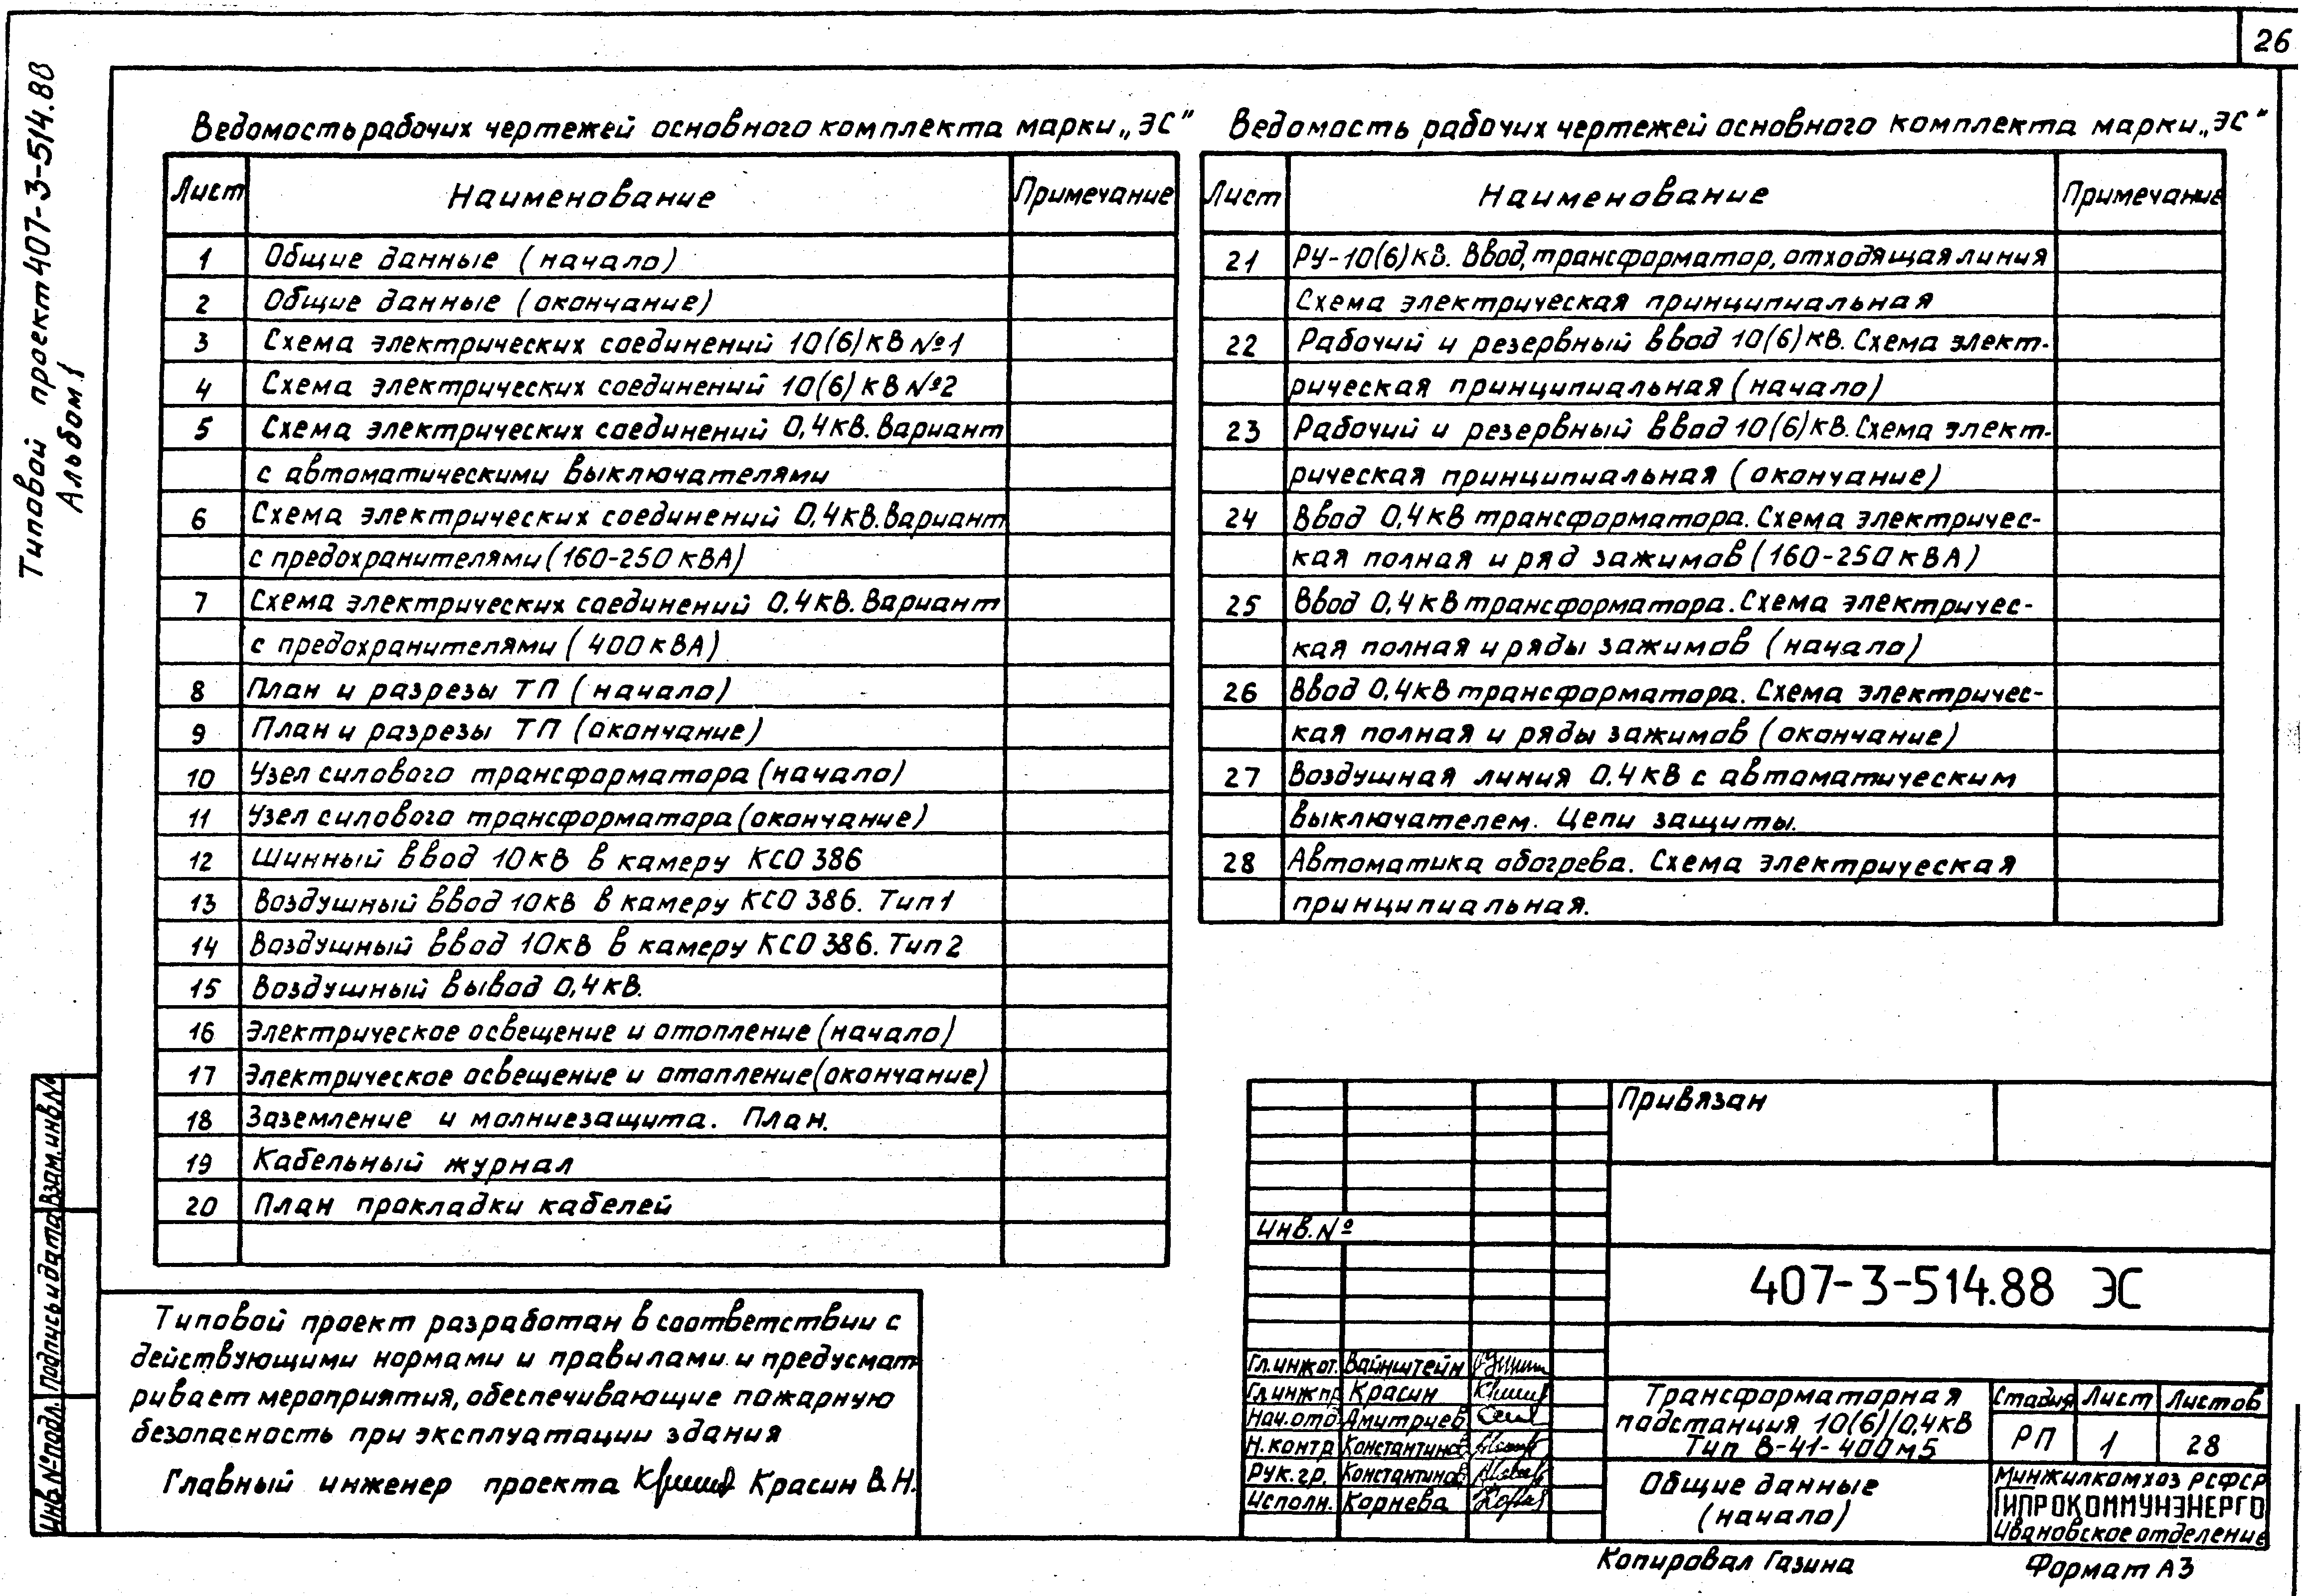 26
Типовой проект 407-3-514.88
Альбом 1
Ведомость рабочих чертежей основного комплекта марки „ЭС"
Лист Наименование Примечание
1 Общие данные (начало)
2 Общие данные (окончание)
3 Схема электрических соединений 10(6) кВ №1
4 Схема электрических соединений 10(6) кВ №2
5 Схема электрических соединений 0,4кВ. Вариант
с автоматическими выключателями
6 Схема электрических соединений 0,4кВ. Вариант
с предохранителями (160-250 кВА)
7 Схема электрических соединений 0,4кВ. Вариант
с предохранителями (400 кВА)
8 План и разрезы ТП (начало)
9 План и разрезы ТП (окончание)
10 Узел силового трансформатора (начало)
11 Узел силового трансформатора (окончание)
12 Шинный ввод 10кВ в камеру КСО 386
13 Воздушный ввод 10кВ в камеру КСО 386. Тип 1
14 Воздушный ввод 10кВ в камеру КСО 386. Тип 2
15 Воздушный вывод 0,4кВ.
16 Электрическое освещение и отопление (начало)
17 Электрическое освещение и отопление (окончание)
18 Заземление и молниезащита. План.
19 Кабельный журнал
20 План прокладки кабелей
Ведомость рабочих чертежей основного комплекта марки „ЭС"
Лист Наименование Примечание
21 РУ-10(6)кВ. Ввод, трансформатор, отходящая линия
Схема электрическая принципиальная
22 Рабочий и резервный ввод 10(6)кВ. Схема элект-
рическая принципиальная (начало)
23 Рабочий и резервный ввод 10(6)кВ. Схема элект-
рическая принципиальная (окончание)
24 Ввод 0,4кВ трансформатора. Схема электричес-
кая полная и ряд зажимов (160-250 кВА)
25 Ввод 0,4кВ трансформатора. Схема электричес-
кая полная и ряды зажимов (начало)
26 Ввод 0,4кВ трансформатора. Схема электричес-
кая полная и ряды зажимов (окончание)
27 Воздушная линия 0,4кВ с автоматическим
выключателем. Цепи защиты.
28 Автоматика обогрева. Схема электрическая
принципиальная.
Типовой проект разработан в соответствии с
действующими нормами и правилами и предусмат
ривает мероприятия, обеспечивающие пожарную
безопасность при эксплуатации здания
Главный инженер проекта Красин В.Н.
Взам.инв.№
Подпись и дата
Инв.№ подл.
Привязан
Инв.№
407-3-514.88 ЭС
Гл.инж.от. Вайнштейн
Гл.инж.пр Красин
Нач.отд Дмитриев
Н.контр Константинов
Рук.гр. Константинов
Исполн. Корнева
Трансформаторная
подстанция 10(6)/0,4кВ
Тип В-41-400м5
Стадия Лист Листов
РП 1 28
Общие данные
(начало)
Минжилкомхоз РСФСР
ГИПРОКОММУНЭНЕРГО
Ивановское отделение
Копировал Газина
Формат А3